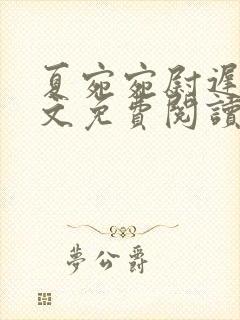 夏宛宛尉遲
文免費閱讀
夢公爵